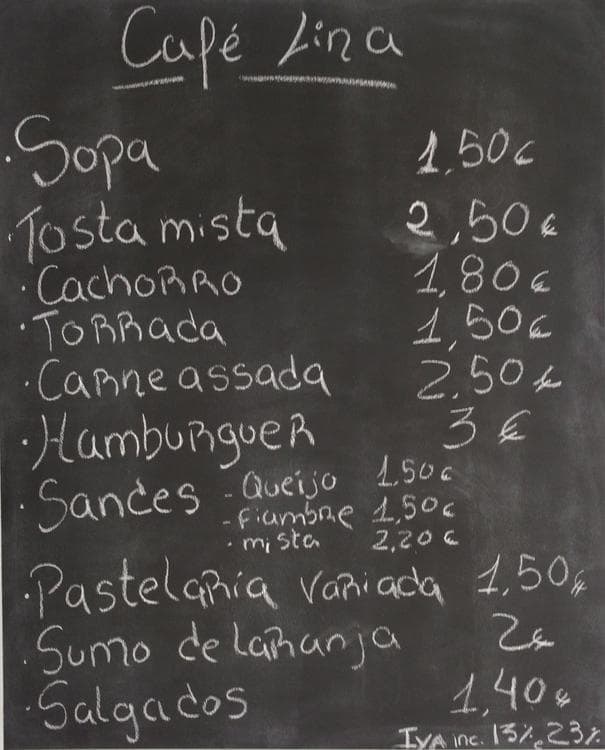 Café Lina
. Sopa 1.50€
. Tosta mista 2,50€
. Cachorro 1,80€
. Torrada 1,50€
. Carne assada 2.50€
. Hamburguer 3 €
. Sandes - Queijo 1.50€
- fiambre 1,50€
. mista 2,20€
. Pastelaria variada 1,50€
. Sumo de Laranja 2€
. Salgados 1,40€
IVA inc. 13%. 23%